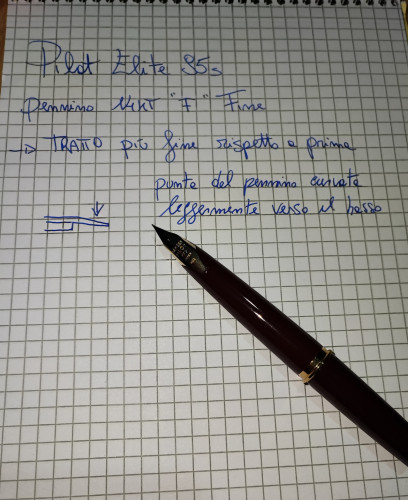 Pilot Elite 95s
Pennino 14KT "F" Fine
→ TRATTO più fine rispetto a prima
punta del pennino curvata
leggermente verso il basso